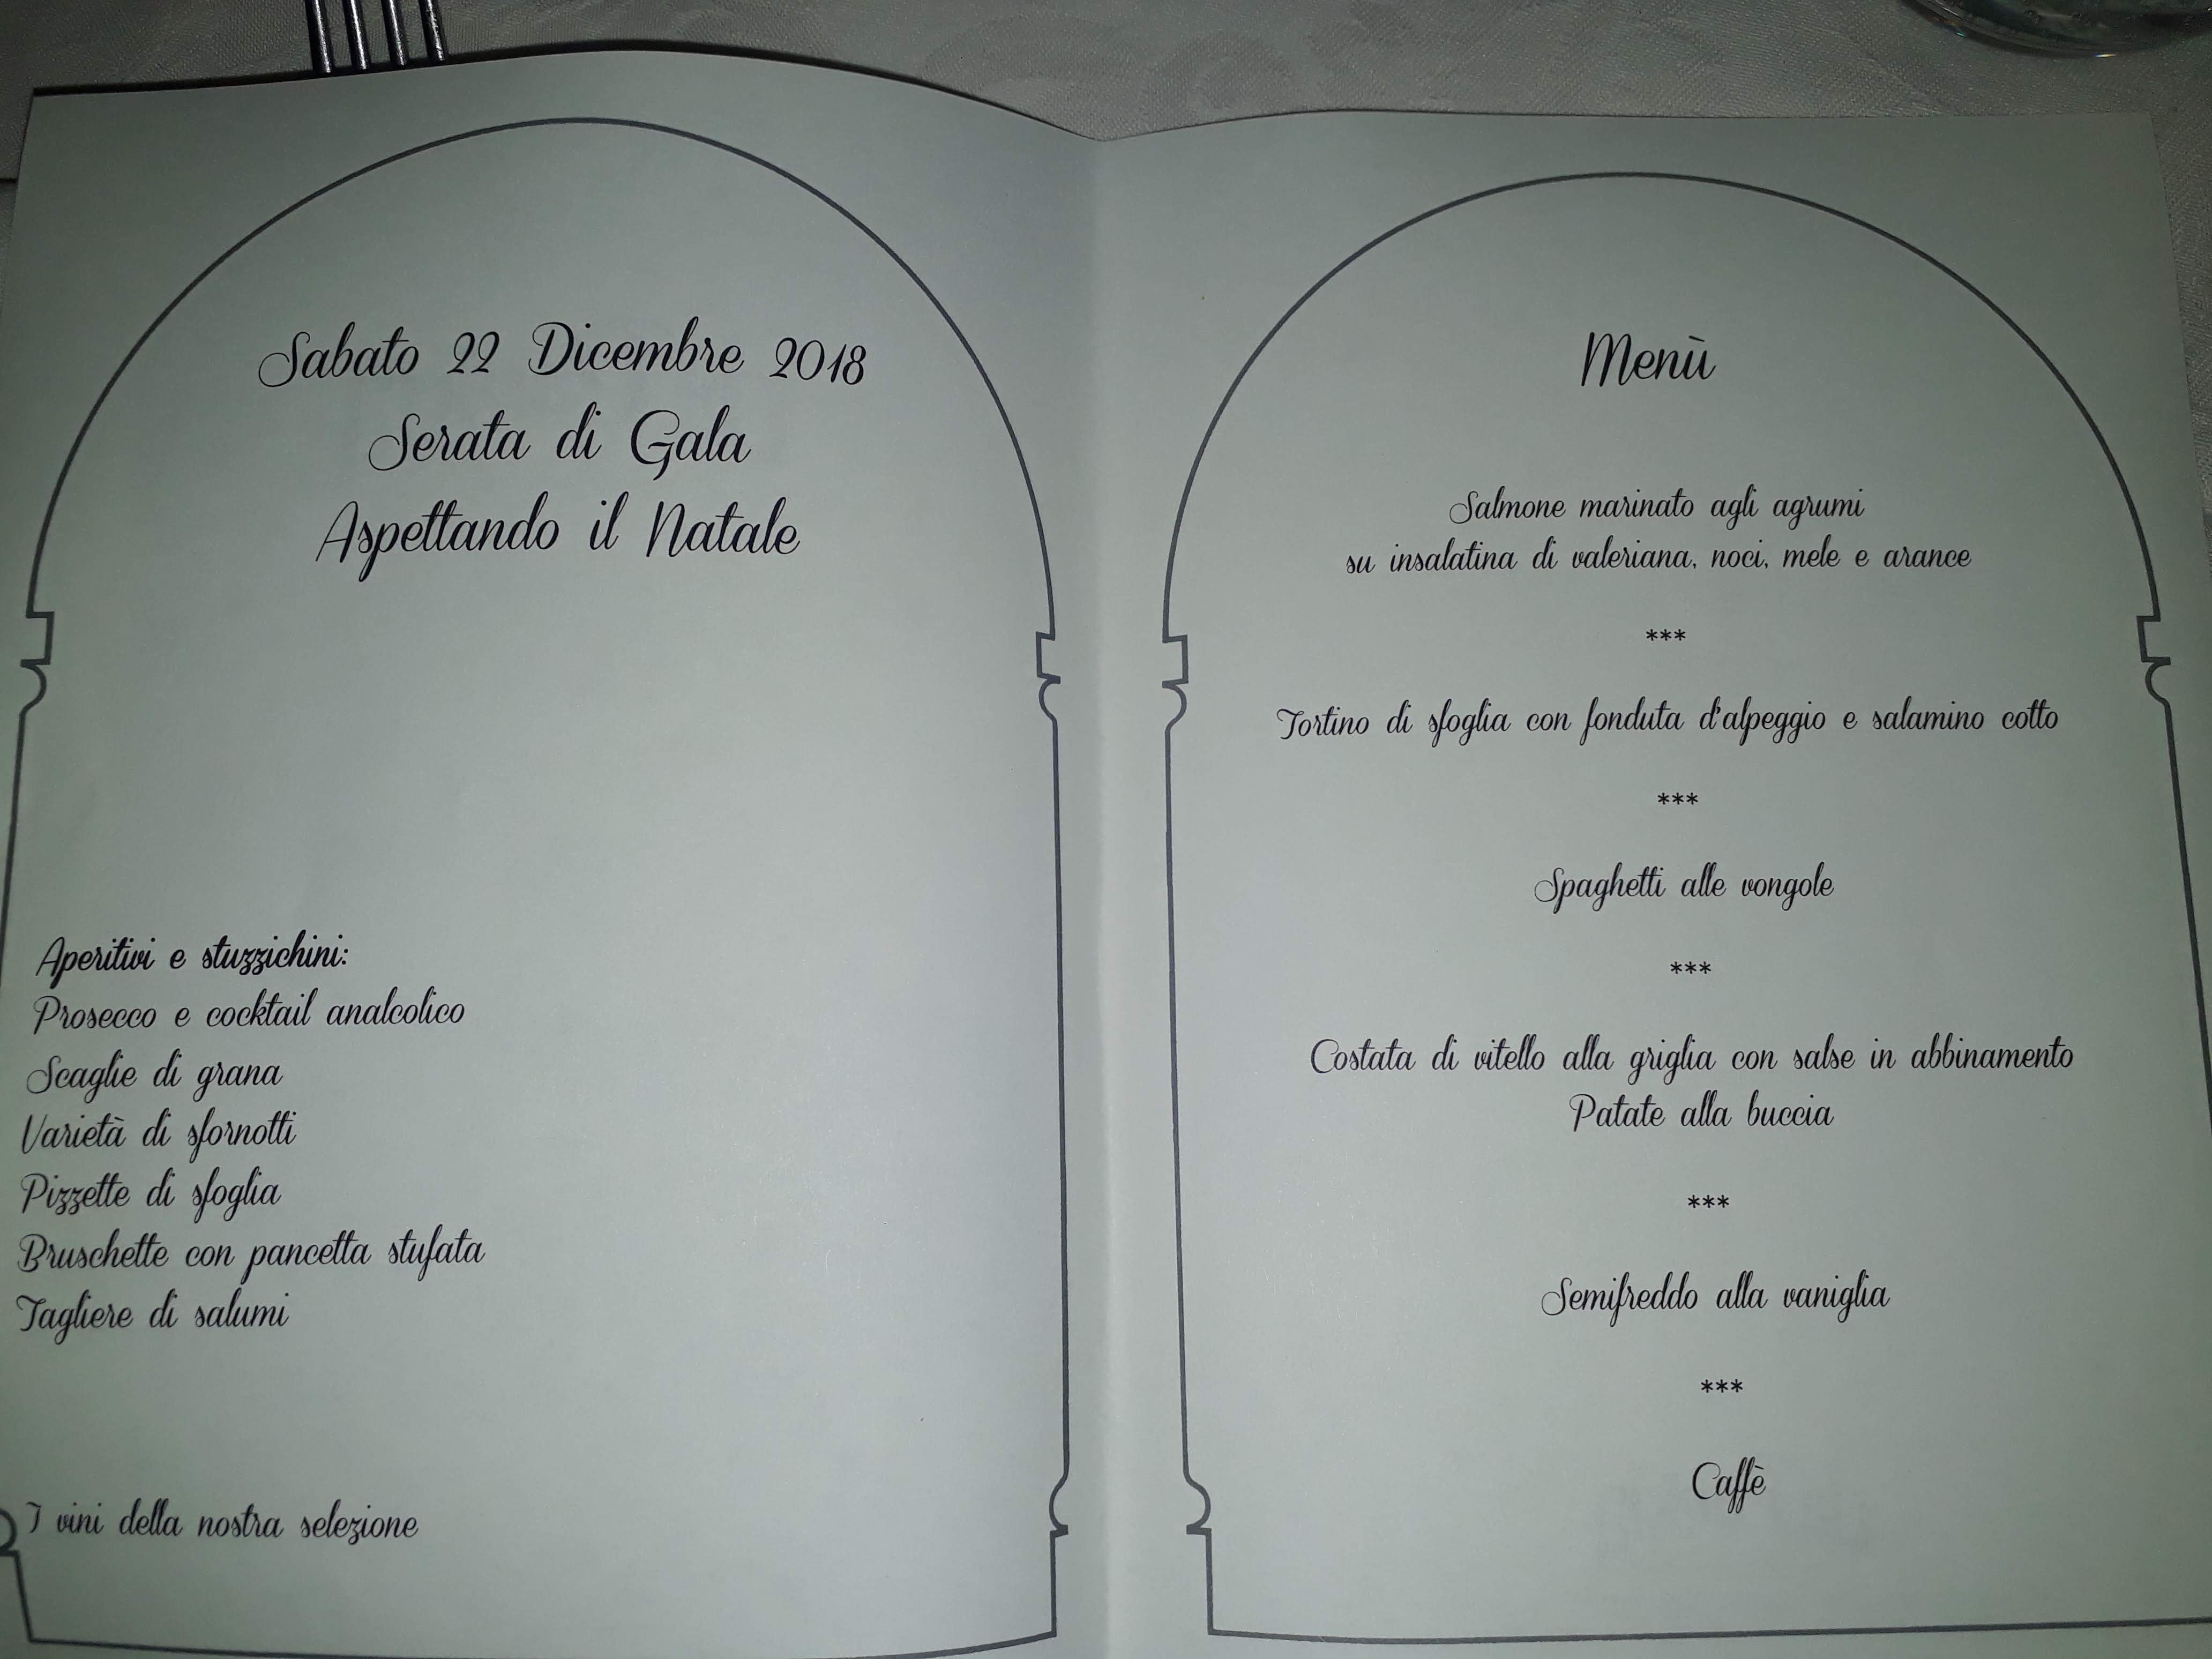 Sabato 22 Dicembre 2018
Serata di Gala
Aspettando il Natale
Aperitivi e stuzzichini:
Prosecco e cocktail analcolico
Scaglie di grana
Varietà di sfornotti
Pizzette di sfoglia
Bruschette con pancetta stufata
Tagliere di salumi
I vini della nostra selezione
Menù
Salmone marinato agli agrumi
su insalatina di valeriana, noci, mele e arance
***
Tortino di sfoglia con fonduta d'alpeggio e salamino cotto
***
Spaghetti alle vongole
***
Costata di vitello alla griglia con salse in abbinamento
Patate alla buccia
***
Semifreddo alla vaniglia
***
Caffè